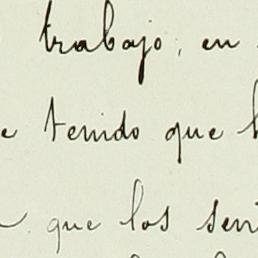 trabajo, en
tenido que
que los